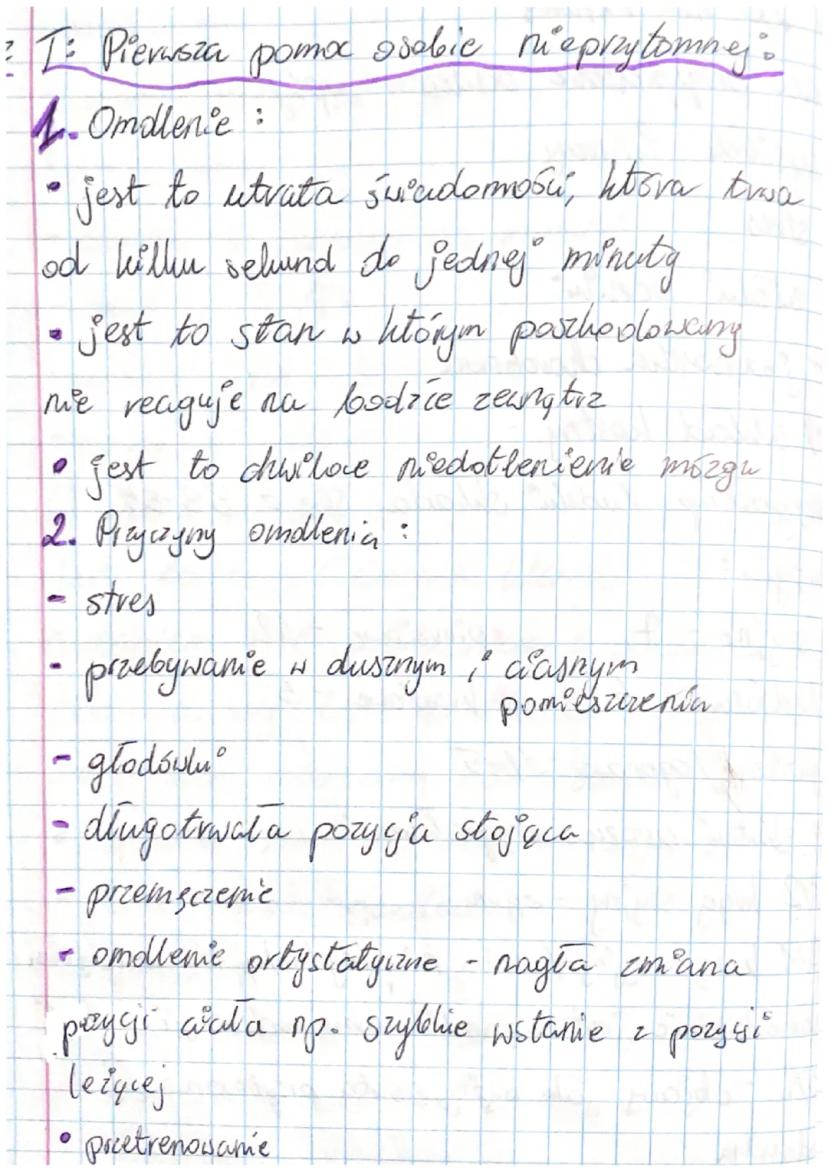 T: Pierwsza pomoc osobie nieprzytomnej:
1. Omdlenie:
• jest to utrata świadomości, która trwa
od kilku sekund do jednej minuty
• jest to stan w którym poszkodowany
nie reaguje na bodźce zewnątrz
• jest to chwilowe niedotlenienie mózgu
2. Przyczyny omdlenia:
- stres
- przebywanie w dusznym i ciasnym
pomieszczeniu
- głodówki
- długotrwała pozycja stojąca
- przemęczenie
- omdlenie ortystatyczne - nagła zmiana
pozycji ciała np. szybkie wstanie z pozycji
leżącej
• przetrenowanie